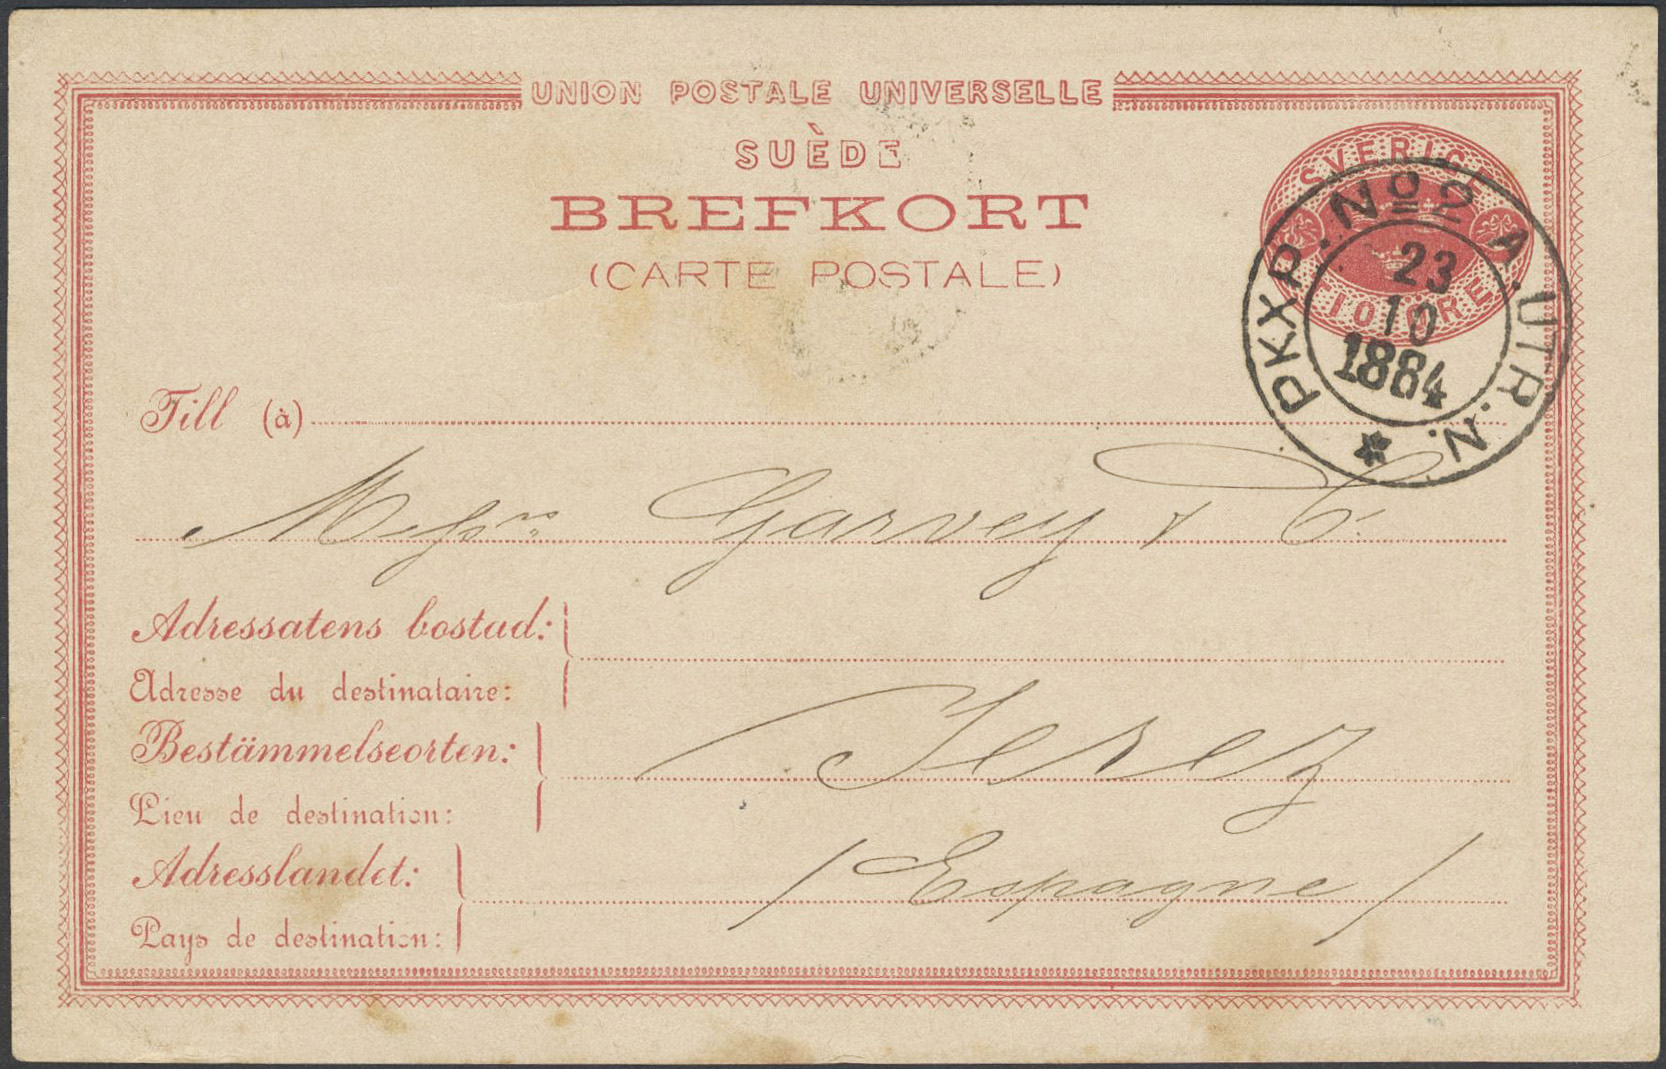 UNION POSTALE UNIVERSELLE
SUÈDE
BREFKORT
(CARTE POSTALE)
SVERIGE
TIO ÖRE
PKXP. No 2 A. UTR. N.
23
10
1884
Till (à)
Messrs Garvey & C.
Adressatens bostad:
Adresse du destinataire:
Bestämmelseorten:
Jerez
Lieu de destination:
Adresslandet:
/ Espagne /
Pays de destination: